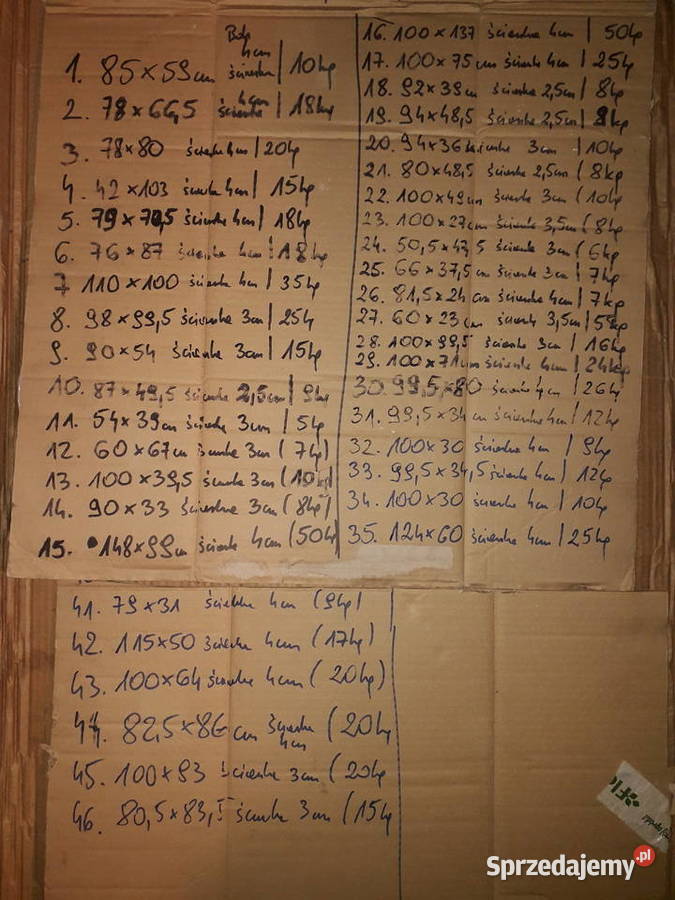 4cm
1. 85x59cm ścienka | 10kg
4cm
2. 78x66,5 ścienka | 18kg
3. 78x80 ścienka 4cm | 20kg
4. 42x103 ścienka 4cm | 15kg
5. 79x70,5 ścienka 4cm | 18kg
6. 76x87 ścienka 4cm | 18kg
7 110x100 ścienka 4cm | 35kg
8. 98x99,5 ścienka 3cm | 25kg
9. 90x54 ścienka 3cm | 15kg
10. 87x49,5 ścienka 2,5cm | 9kg
11. 54x39cm ścienka 3cm | 5kg
12. 60x67cm ścienka 3cm (7kg)
13. 100x39,5 ścienka 3cm (10kg)
14. 90x33 ścienka 3cm (8kg)
15. 148x99cm ścienka 4cm (50kg
16. 100x137 ścienka 4cm | 50kg
17. 100x75cm ścienka 4cm | 25kg
18. 92x39cm ścienka 2,5cm | 8kg
19. 94x48,5 ścienka 2,5cm | 9kg
20. 94x36 ścienka 3cm | 10kg
21. 80x48,5 ścienka 2,5cm | 8kg
22. 100x49cm ścienka 3cm (10kg
23. 100x27cm ścienka 3,5cm (8kg
24. 50,5x47,5 ścienka 3cm (6kg
25. 66x37,5cm ścienka 3cm | 7kg
26. 81,5x24cm ścienka 4cm | 7kg
27. 60x23cm ścienka 3,5cm | 5kg
28. 100x99,5 ścienka 3cm | 16kg
29. 100x71cm ścienka 4cm | 24kg
30. 99,5x80 ścienka 4cm | 26kg
31. 99,5x34cm ścienka 4cm | 12kg
32. 100x30 ścienka 4cm | 9kg
33. 99,5x34,5 ścienka 4cm | 12kg
34. 100x30 ścienka 4cm | 10kg
35. 124x60 ścienka 4cm | 25kg
41. 79x31 ścienka 4cm (9kg)
42. 115x50 ścienka 4cm (17kg)
43. 100x64 ścienka 4cm (20kg)
44. 82,5x86cm ścienka (20kg
4cm
45. 100x93 ścienka 3cm (20kg
46. 80,5x83,5 ścienka 3cm (15kg
Sprzedajemy.pl